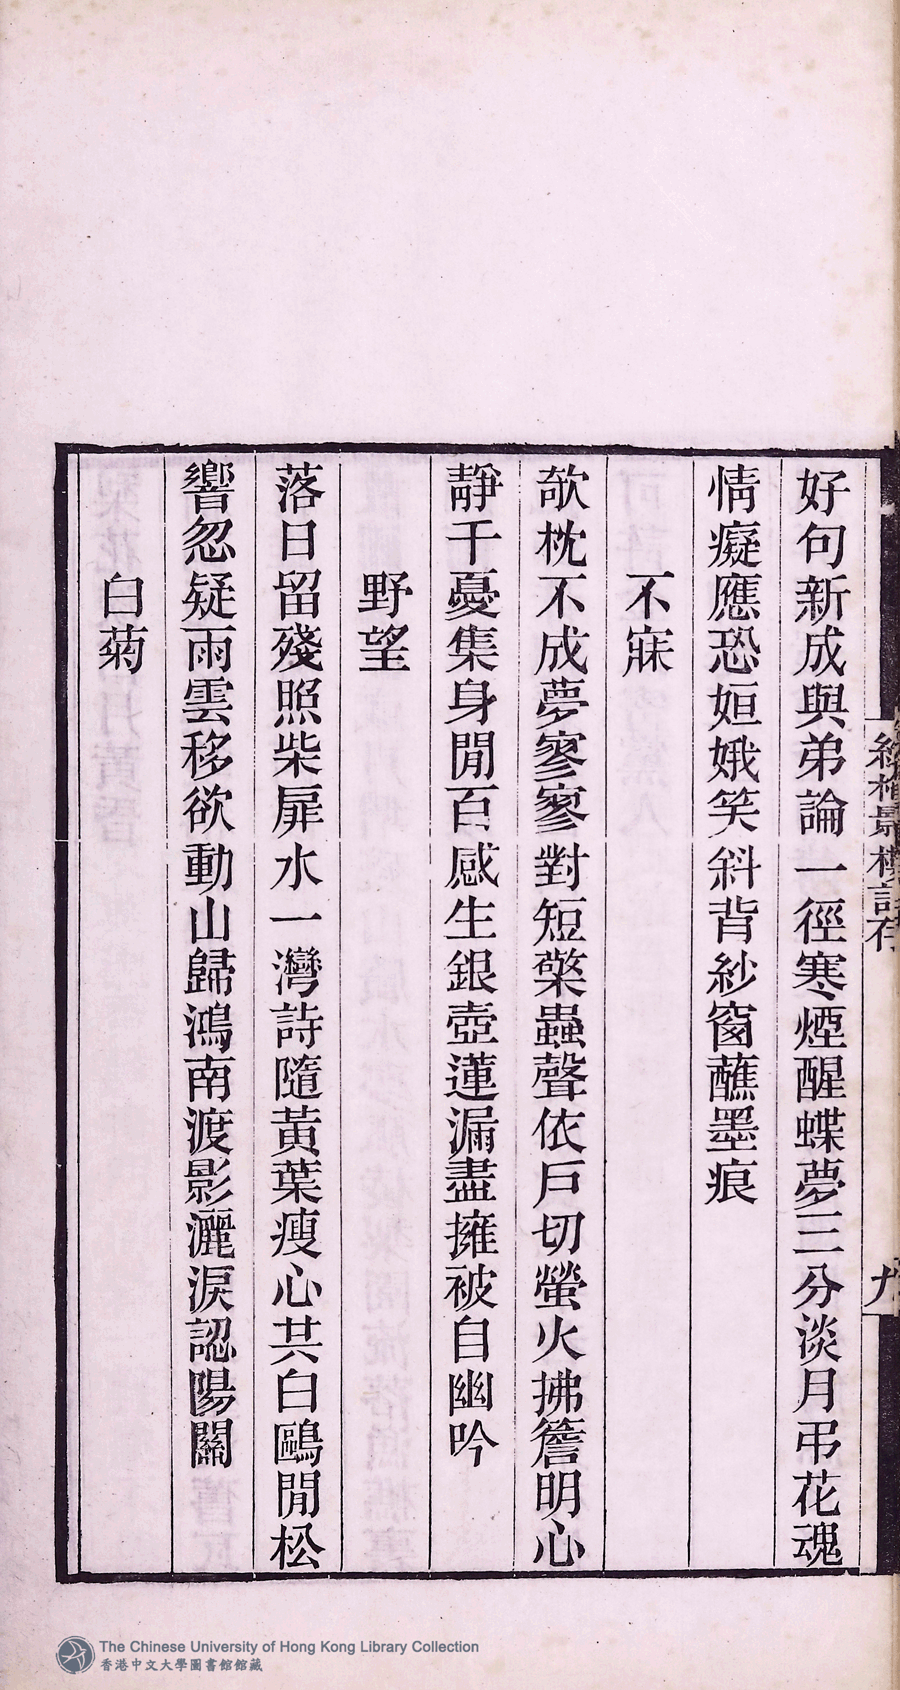 好句新成與弟論一徑寒煙醒蝶夢三分淡月弔花魂
情癡應恐姮娥笑斜背紗窗蘸墨痕
不寐
欹枕不成夢寥寥對短檠蟲聲依戶切螢火拂簷明心
靜千憂集身閒百感生銀壺蓮漏盡擁被自幽吟
野望
落日留殘照柴扉水一灣詩隨黃葉瘦心共白鷗閒松
響忽疑雨雲移欲動山歸鴻南渡影灑淚認陽關
白菊
The Chinese University of Hong Kong Library Collection
香港中文大學圖書館館藏